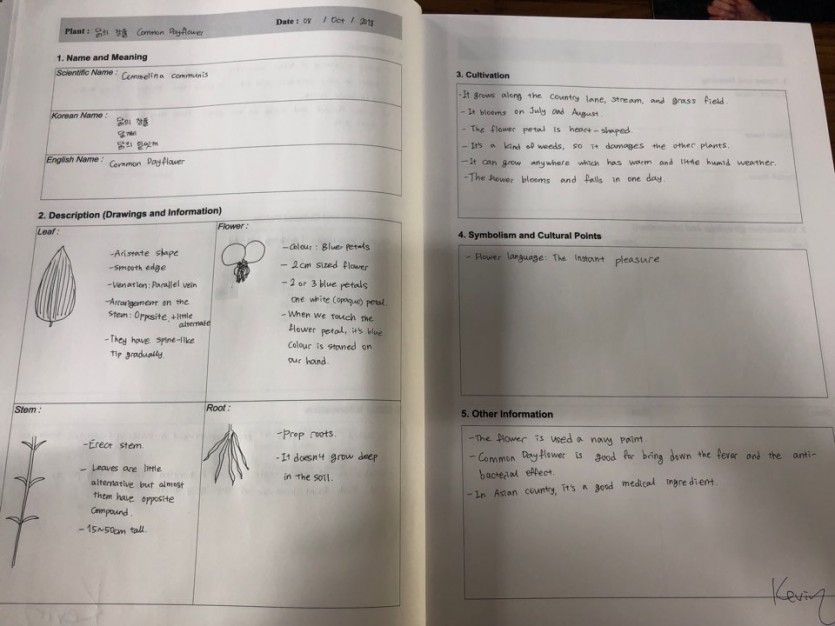 Plant : 닭의 장풀 Common Dayflower
Date : 08 / Oct / 2018
1. Name and Meaning
Scientific Name : Commelina communis
Korean Name :
닭의 장풀
달개비
닭의
English Name : Common Dayflower
2. Description (Drawings and Information)
Leaf :
-Aristate shape
-Smooth edge
-Venation: Parallel vein
-Arrangement on the
stem: Opposite +little
alternate
-They have spine-like
Tip gradually.
Flower :
-Colour : Blue petals
- 2cm sized flower
- 2 or 3 blue petals
one white (opaque) petal
-When we touch the
flower petal, it's blue
colour is stained on
our hand.
Stem :
-Erect stem.
- Leaves are little
alternative but almost
them have opposite
compound.
- 15~50cm tall.
Root :
-Prop roots.
-It doesn't grow deep
in the soil.
3. Cultivation
-It grows along the country lane, stream, and grass field.
-It blooms on July and August.
- The flower petal is heart-shaped.
-It's a kind of weeds, so it damages the other plants.
-It can grow anywhere which has warm and little humid weather.
-The flower blooms and falls in one day.
4. Symbolism and Cultural Points
- Flower language: The instant pleasure
5. Other Information
-The flower is used a navy paint.
- Common Dayflower is good for bring down the fever and the anti-
bacterial effect.
- In Asian country, it's a good medical ingredient.
Kevin